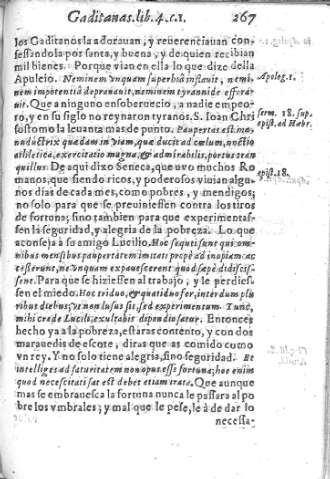 Gaditanas. lib. 4. c. 1. 267
los Gaditanos la adorauan, y reuerenciauan con-
fessandola por santa, y buena, y de quien recibian
mil bienes. Porque vian en ella lo que dize della
Apuleio. Neminem vnquam superbia inflauit, nemi-
nem impotentia deprauauit, neminem tyrannide effera-
uit. Que a ninguno ensoberuecio, a nadie empeo-
ro, y en su siglo no reynaron tyranos. S. Ioan Chri
sostomo la leuanta mas de punto. Paupertas est ma-
nuductrix quadam in viam, quæ ducit ad cælum, vnctio
athletica, exercitatio magna, & admirabilis, portus tran
quillus. De aqui dixo Seneca, que vuo muchos Ro
manos, que siendo ricos, y poderosos viuian algu-
nos dias de cada mes, como pobres, y mendigos;
no solo para que se preuiniessen contra los tiros
de fortuna; sino tambien para que experimentas-
sen la seguridad, y alegria de la pobreza. Lo que
aconseja à su amigo Lucillo. Hoc sequti sunt qui om-
nibus mensibus paupertatem imitati prope ad inopiam ac-
cesserunt, ne vnquam expauescerent quod sæpè didicis-
sent. Para que se hiziessen al trabajo, y le perdies-
sen el miedo. Hoc triduo, & quatriduo fer, interdum plu
ribus diebus, vt non lusus sit, sed experimentum. Tunc,
mihi crede Lucili, exultabis dipondio satur. Entonces
hecho ya a la pobreza, estaras contento, y con dos
marauedis de escote, diras que as comido como
vn rey. Y no solo tiene alegria, sino seguridad. Et
intelliges ad saturitatem non opus esse fortuna; hoc enim
quod necescitati sat est debet etiam irata. Que aunque
mas se embrauesca la fortuna nunca le passara al po
bre los vmbrales; y mal que le pese, le à de dar lo
necessa-
Apolog. 1.
serm. 18. sup.
epist. ad Habr.
epist. 18.